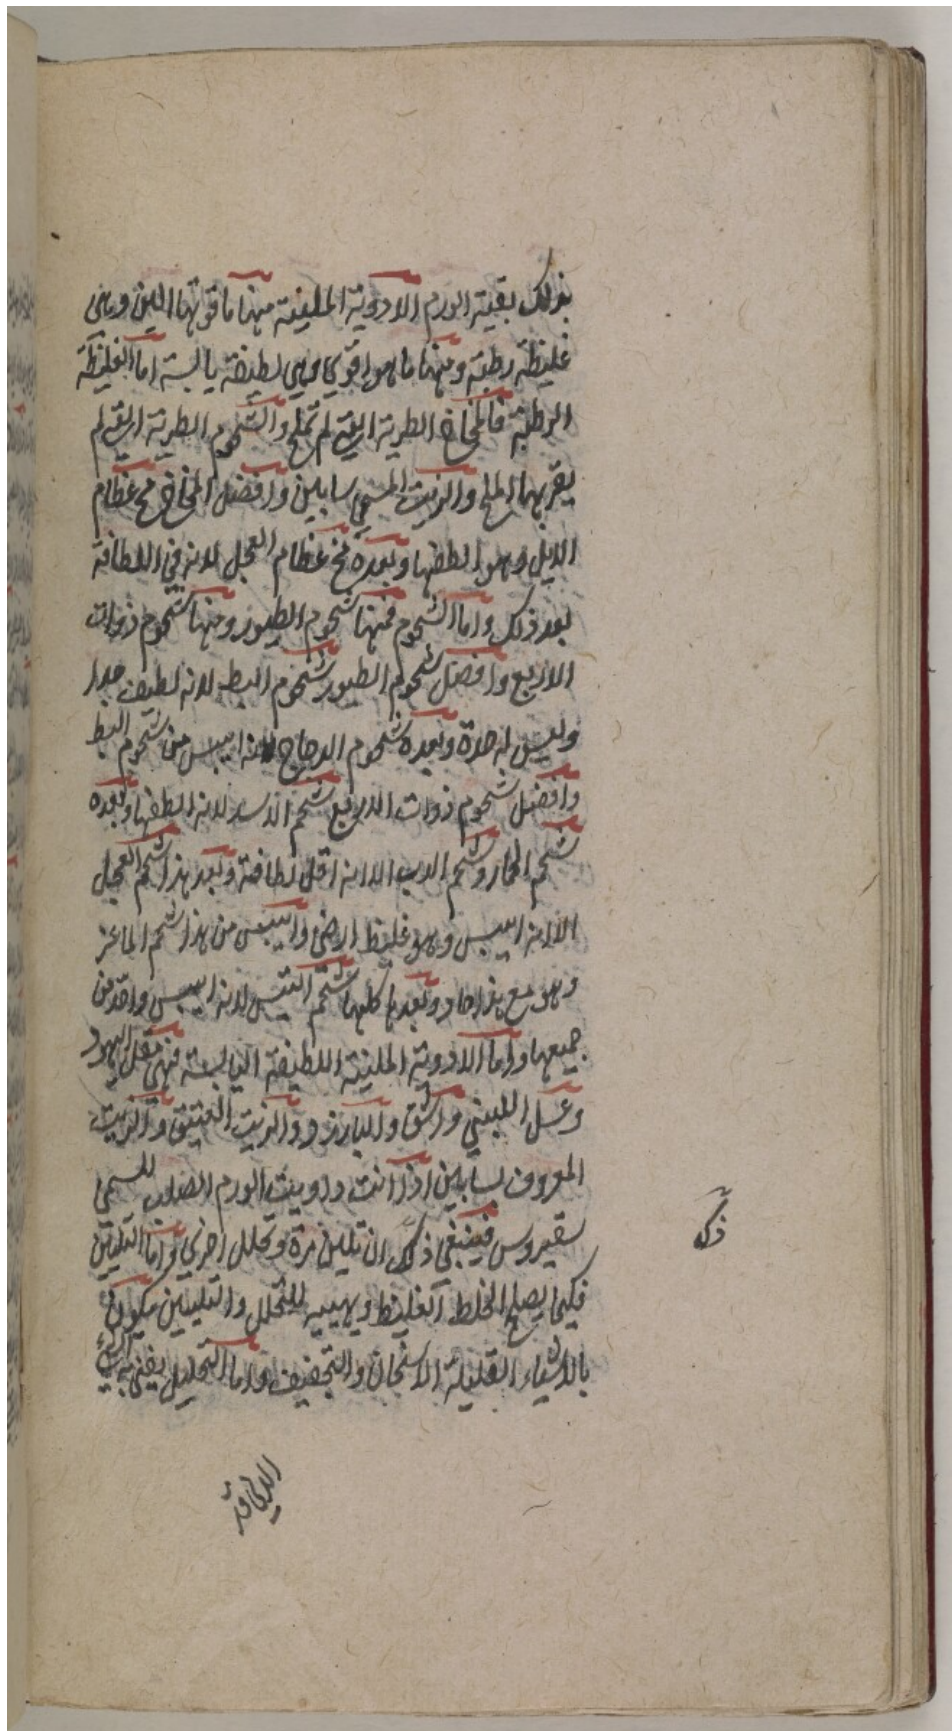 بذلك بقية الورم الادوية الملينة منها ما قوتها الين وهي
غليظة رطبة ومنها ما هو اقوي وهي لطيفة يابسة اما الغليظة
الرطبة فالمخاخ الطرية التي لم تملح والشحوم الطرية التي لم
يقربها الملح والزيت المسمى سابلين وافضل المخاخ مخ عظام
الايل وهو الطفها وبعده مخ عظام العجل لانه في اللطافة
بعد ذلك واما الشحوم فمنها شحوم الطيور ومنها شحوم ذوات
الاربع وافضل شحوم الطيور شحوم البط لانه لطيف جدا
وليس له حدة وبعده شحوم الدجاج لانه ايبس من شحوم البط
وافضل شحوم ذوات الاربع شحم الاسد لانه الطفها وبعده
شحم الحمار وشحم الدب الا انه اقل لطافة وبعد هذا شحم العجل
الا انه ايبس وهو غليظ ارضي وايبس من هذا شحم الماعز
وهو مع هذا حاد وبعدها كلها شحم التيس لانه ايبس واحد من
جميعها واما الادوية الملينة اللطيفة اليابسة فهي مقل اليهود
وعسل اللبني واشق والبارزد والزيت العتيق والزيت
المعروف بسابلين اذا انت داويت الورم الصلب المسمى
سقيروس فينبغي لك ان تلين مرة وتحلل اخري واما التليين
فكيما يصلح الخلط الغليظ ويهييه للتحلل والتليين يكون
بالاشياء القليلة الاسخان والتجفيف واما التحليل يفني به
ذلك